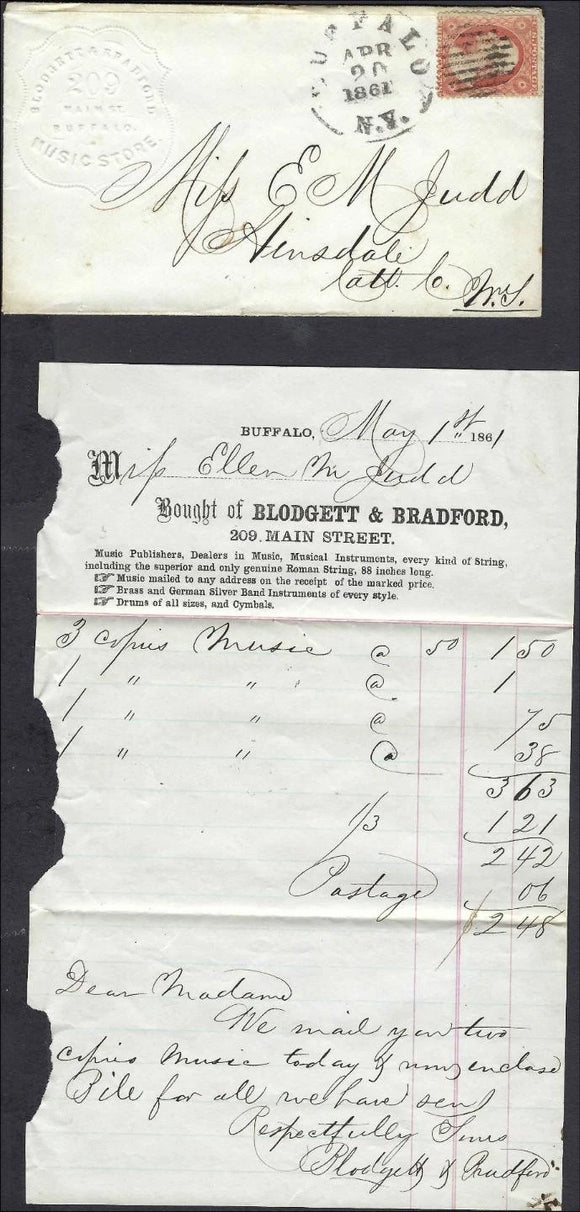 BLODGETT & BRADFORD
209
MAIN ST.
BUFFALO.
MUSIC STORE
BUFFALO
APR
20
1861
N.Y.
Miss E M Judd
Hinsdale
Catt. Co. N.Y.
BUFFALO, May 1st 1861
Miss Ellen M Judd
Bought of BLODGETT & BRADFORD,
209. MAIN STREET.
Music Publishers, Dealers in Music, Musical Instruments, every kind of String,
including the superior and only genuine Roman String, 88 inches long.
☞ Music mailed to any address on the receipt of the marked price.
☞ Brass and German Silver Band Instruments of every style.
☞ Drums of all sizes, and Cymbals.
3 copies Music @ 50 1 50
1 " " @ 1
1 " " @ 75
1 " " @ 38
3 63
1/3 1 21
2 42
Postage 06
$2 48
Dear Madame
We mail you two
copies Music today & enclose
Bile for all we have sent
Respectfully Yours
Blodgett & Bradford